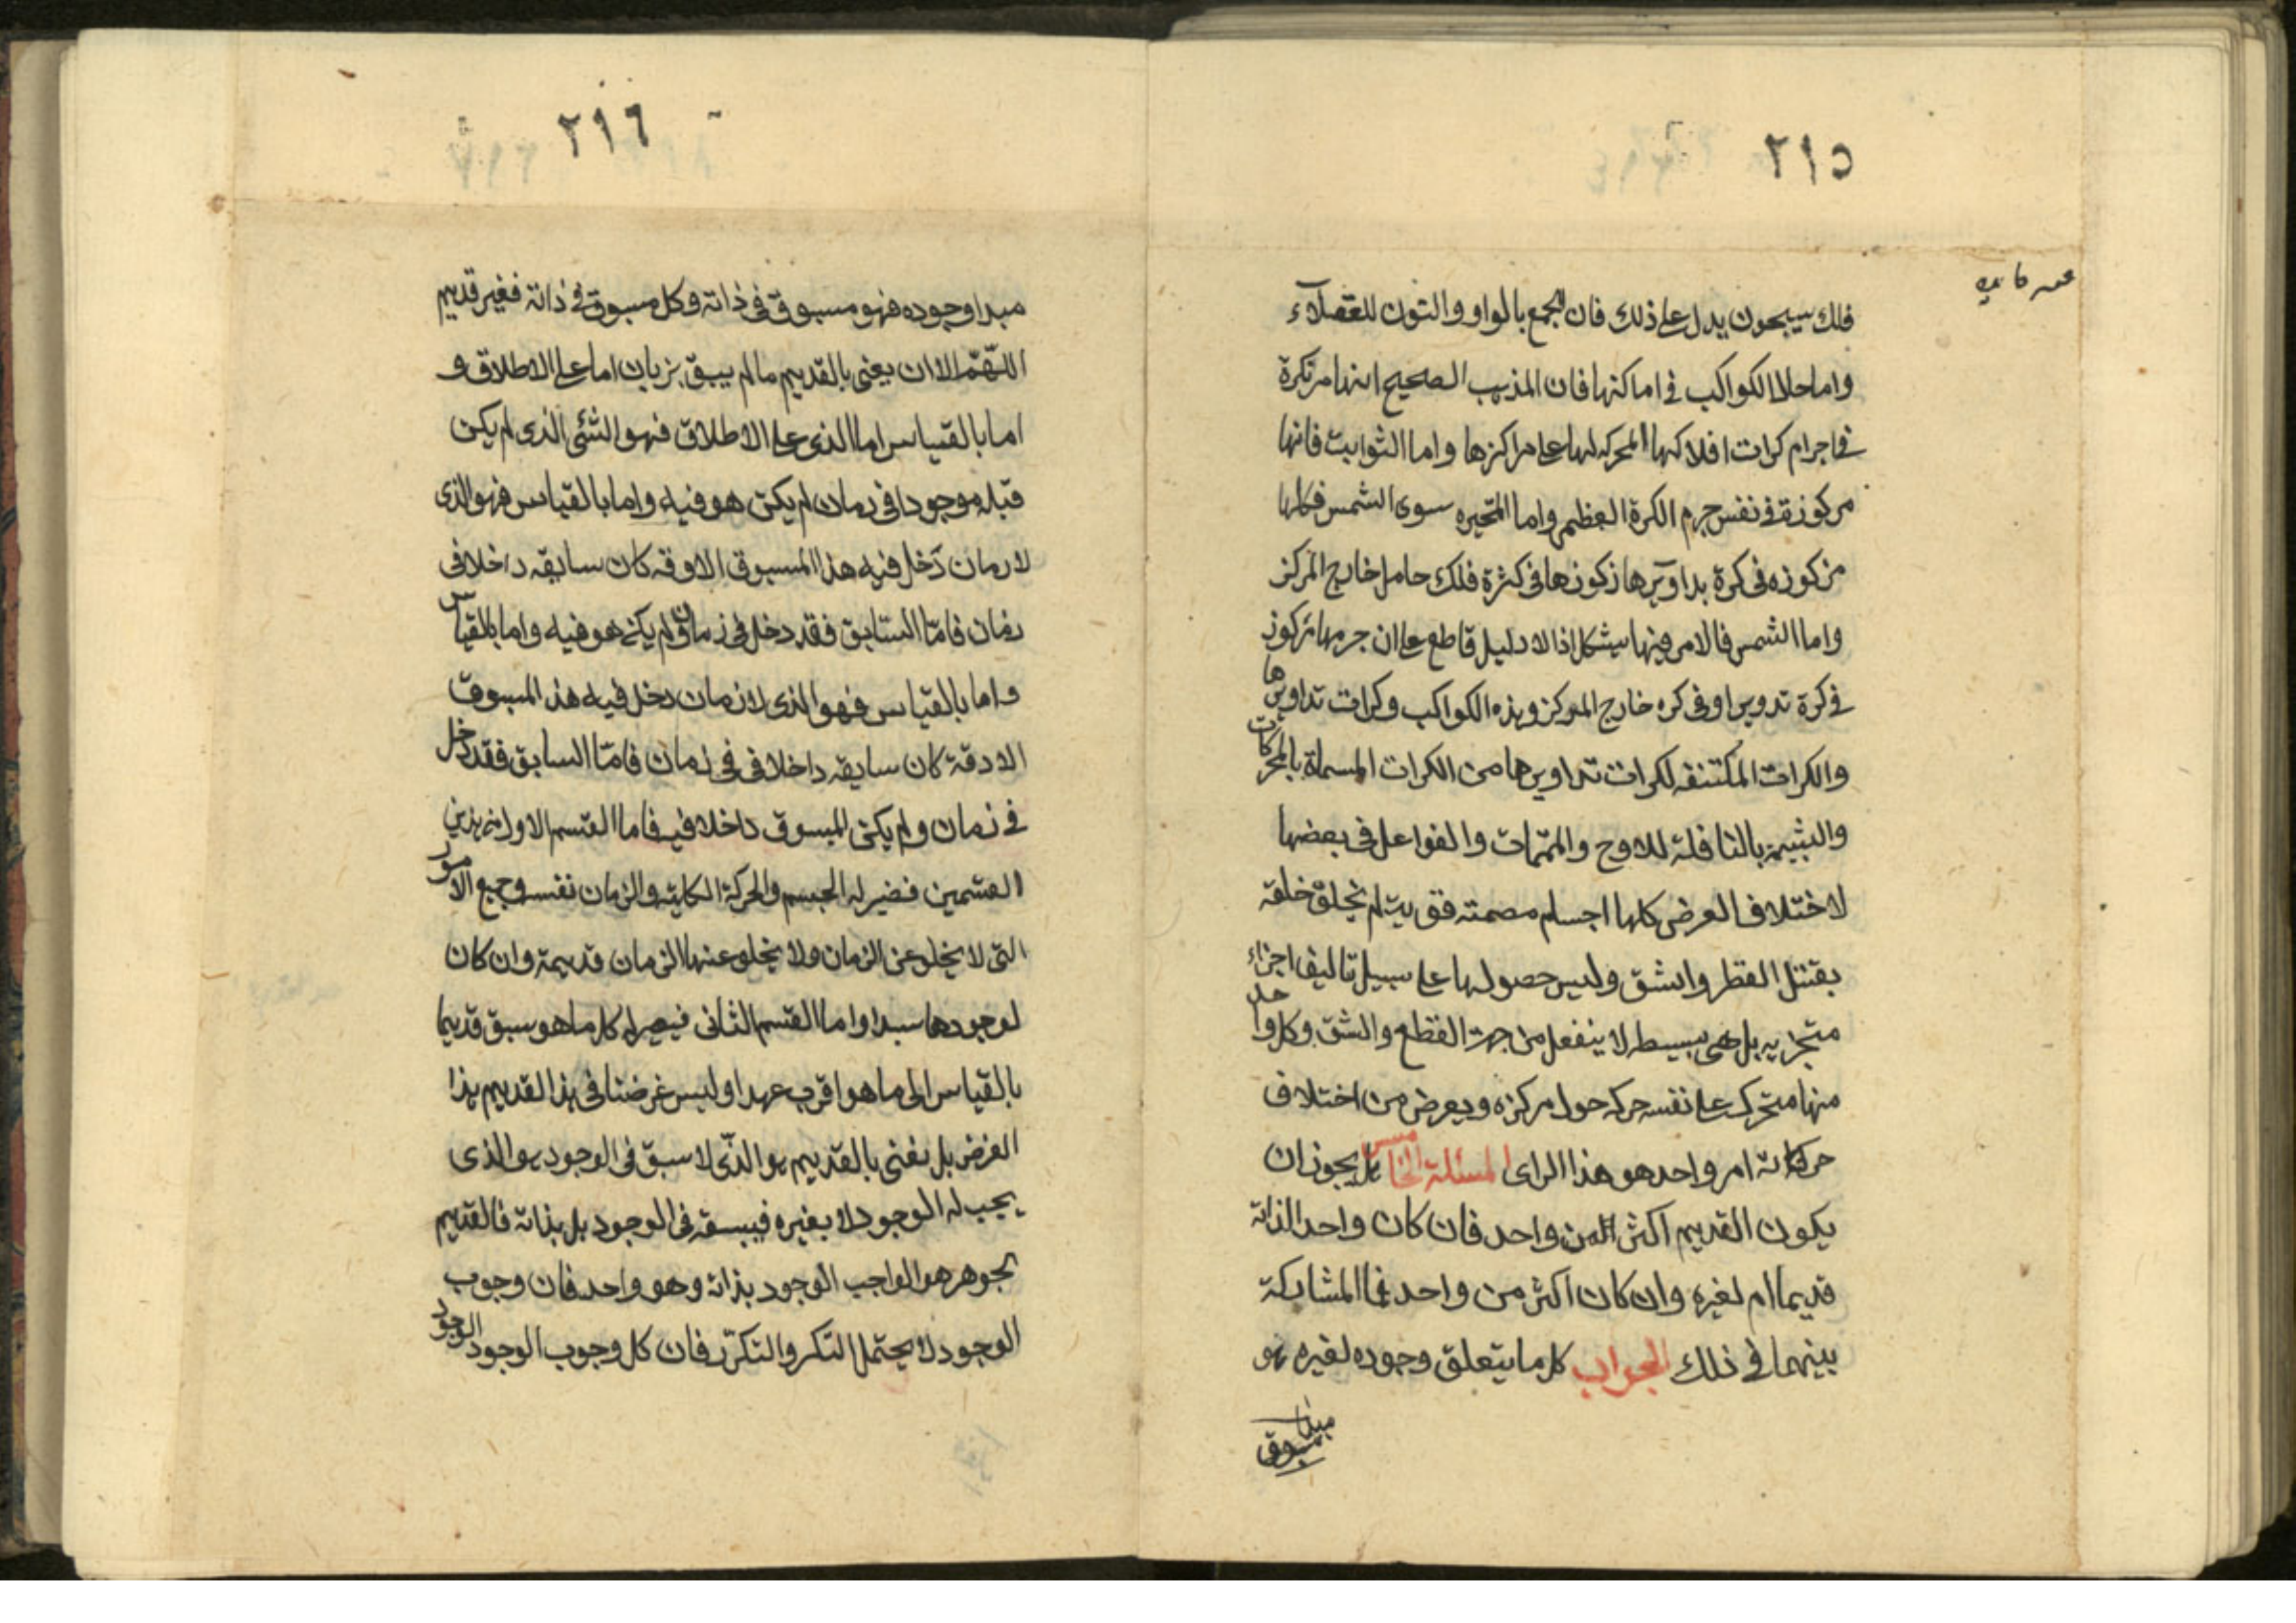 ٢١٥
فلك يسبحون يدل على ذلك فان الجمع بالواو والنون للعقلاء
واما حلا الكواكب في اماكنها فان المذهب الصحيح انها مرتكزة
في اجرام كرات افلاكها المحركه لها على مراكزها واما الثوابت فانها
مركوزة في نفس جرم الكرة العظمى واما المتحيره سوى الشمس فكلها
مركوزه في كرة بداويرها زكوزها في كثرة فلك حامل خارج المركز
واما الشمس فالامر فيها يشكل اذ الا دليل قاطع على ان جرمها مركوز
في كرة تدوير او في كره خارج المركز وهذه الكواكب وكرات تداويرها
والكرات المكتنفه لكرات تداويرها من الكرات المسماة بالمحركات
بالناقلة للاوج والمتممات والفواعل في بعضها
لاختلاف العرض كلها اجسام مصمته لم يخلق خلقه
القطر والشق وليس حصولها على سبيل تاليف اجزاء
متجزيه بل هي بسيطه لا ينفعل من جهة القطع والشق وكل واحد
منها متحرك على نفسه حركه حول مركزه ويعرض من اختلاف
حركاته امر واحد هو هذا الراى المسئلة الخامس هل يجوز ان
يكون القديم اكثر من واحد فان كان واحد الذاته
قديما ام لغيره وان كان اكثر من واحد فما المشاركة
بينهما في ذلك الجواب كل ما يتعلق وجوده لغيره هو
مبدا
مسبوق
٢١٦
مبدا وجوده فهو مسبوق في ذاته وكل مسبوق في ذاته فغير قديم
اللهم الا ان يعنى بالقديم ما لم يسبق بزمان اما على الاطلاق و
اما بالقياس اما الذى على الاطلاق فهو الشئ الذى لم يكن
قبله موجودا في زمان لم يكن هو فيه واما بالقياس فهو الذى
لا زمان دخل فيه هذا المسبوق الا وقه كان سابقه داخلا في
زمان فامّا السابق فقد دخل في زمان ولم يكن هو فيه واما بالقياس
واما بالقياس فهو الذى لا زمان دخل فيه هذا المسبوق
الا دقة كان سابقه داخلا في في زمان فامّا السابق فقد دخل
في زمان ولم يكن المسبوق داخلا فيه فاما القسم الاول من هذين
القسمين فيصير له الجسم والحركة الكلية والزمان نفسه وجميع الامور
التى لا يخلو عن الزمان ولا يخلو عنها الزمان قديمة وان كان
لوجودها مبدا واما القسم الثانى فيصير له كل ما هو سبق قديما
بالقياس الى ما هو اقرب عهدا وليس غرضنا في هذا القديم هذا
الغرض بل نعنى بالقديم هو الذى لا سبق في الوجود هو الذى
يجب له الوجود لا بغيره فيسبقه في الوجود بل بذاته فالقديم
بجوهر هو الواجب الوجود بذاته وهو واحد فان وجوب
الوجود لا يحتمل التكر والتكرّر فان كل وجوب الوجود الوجود